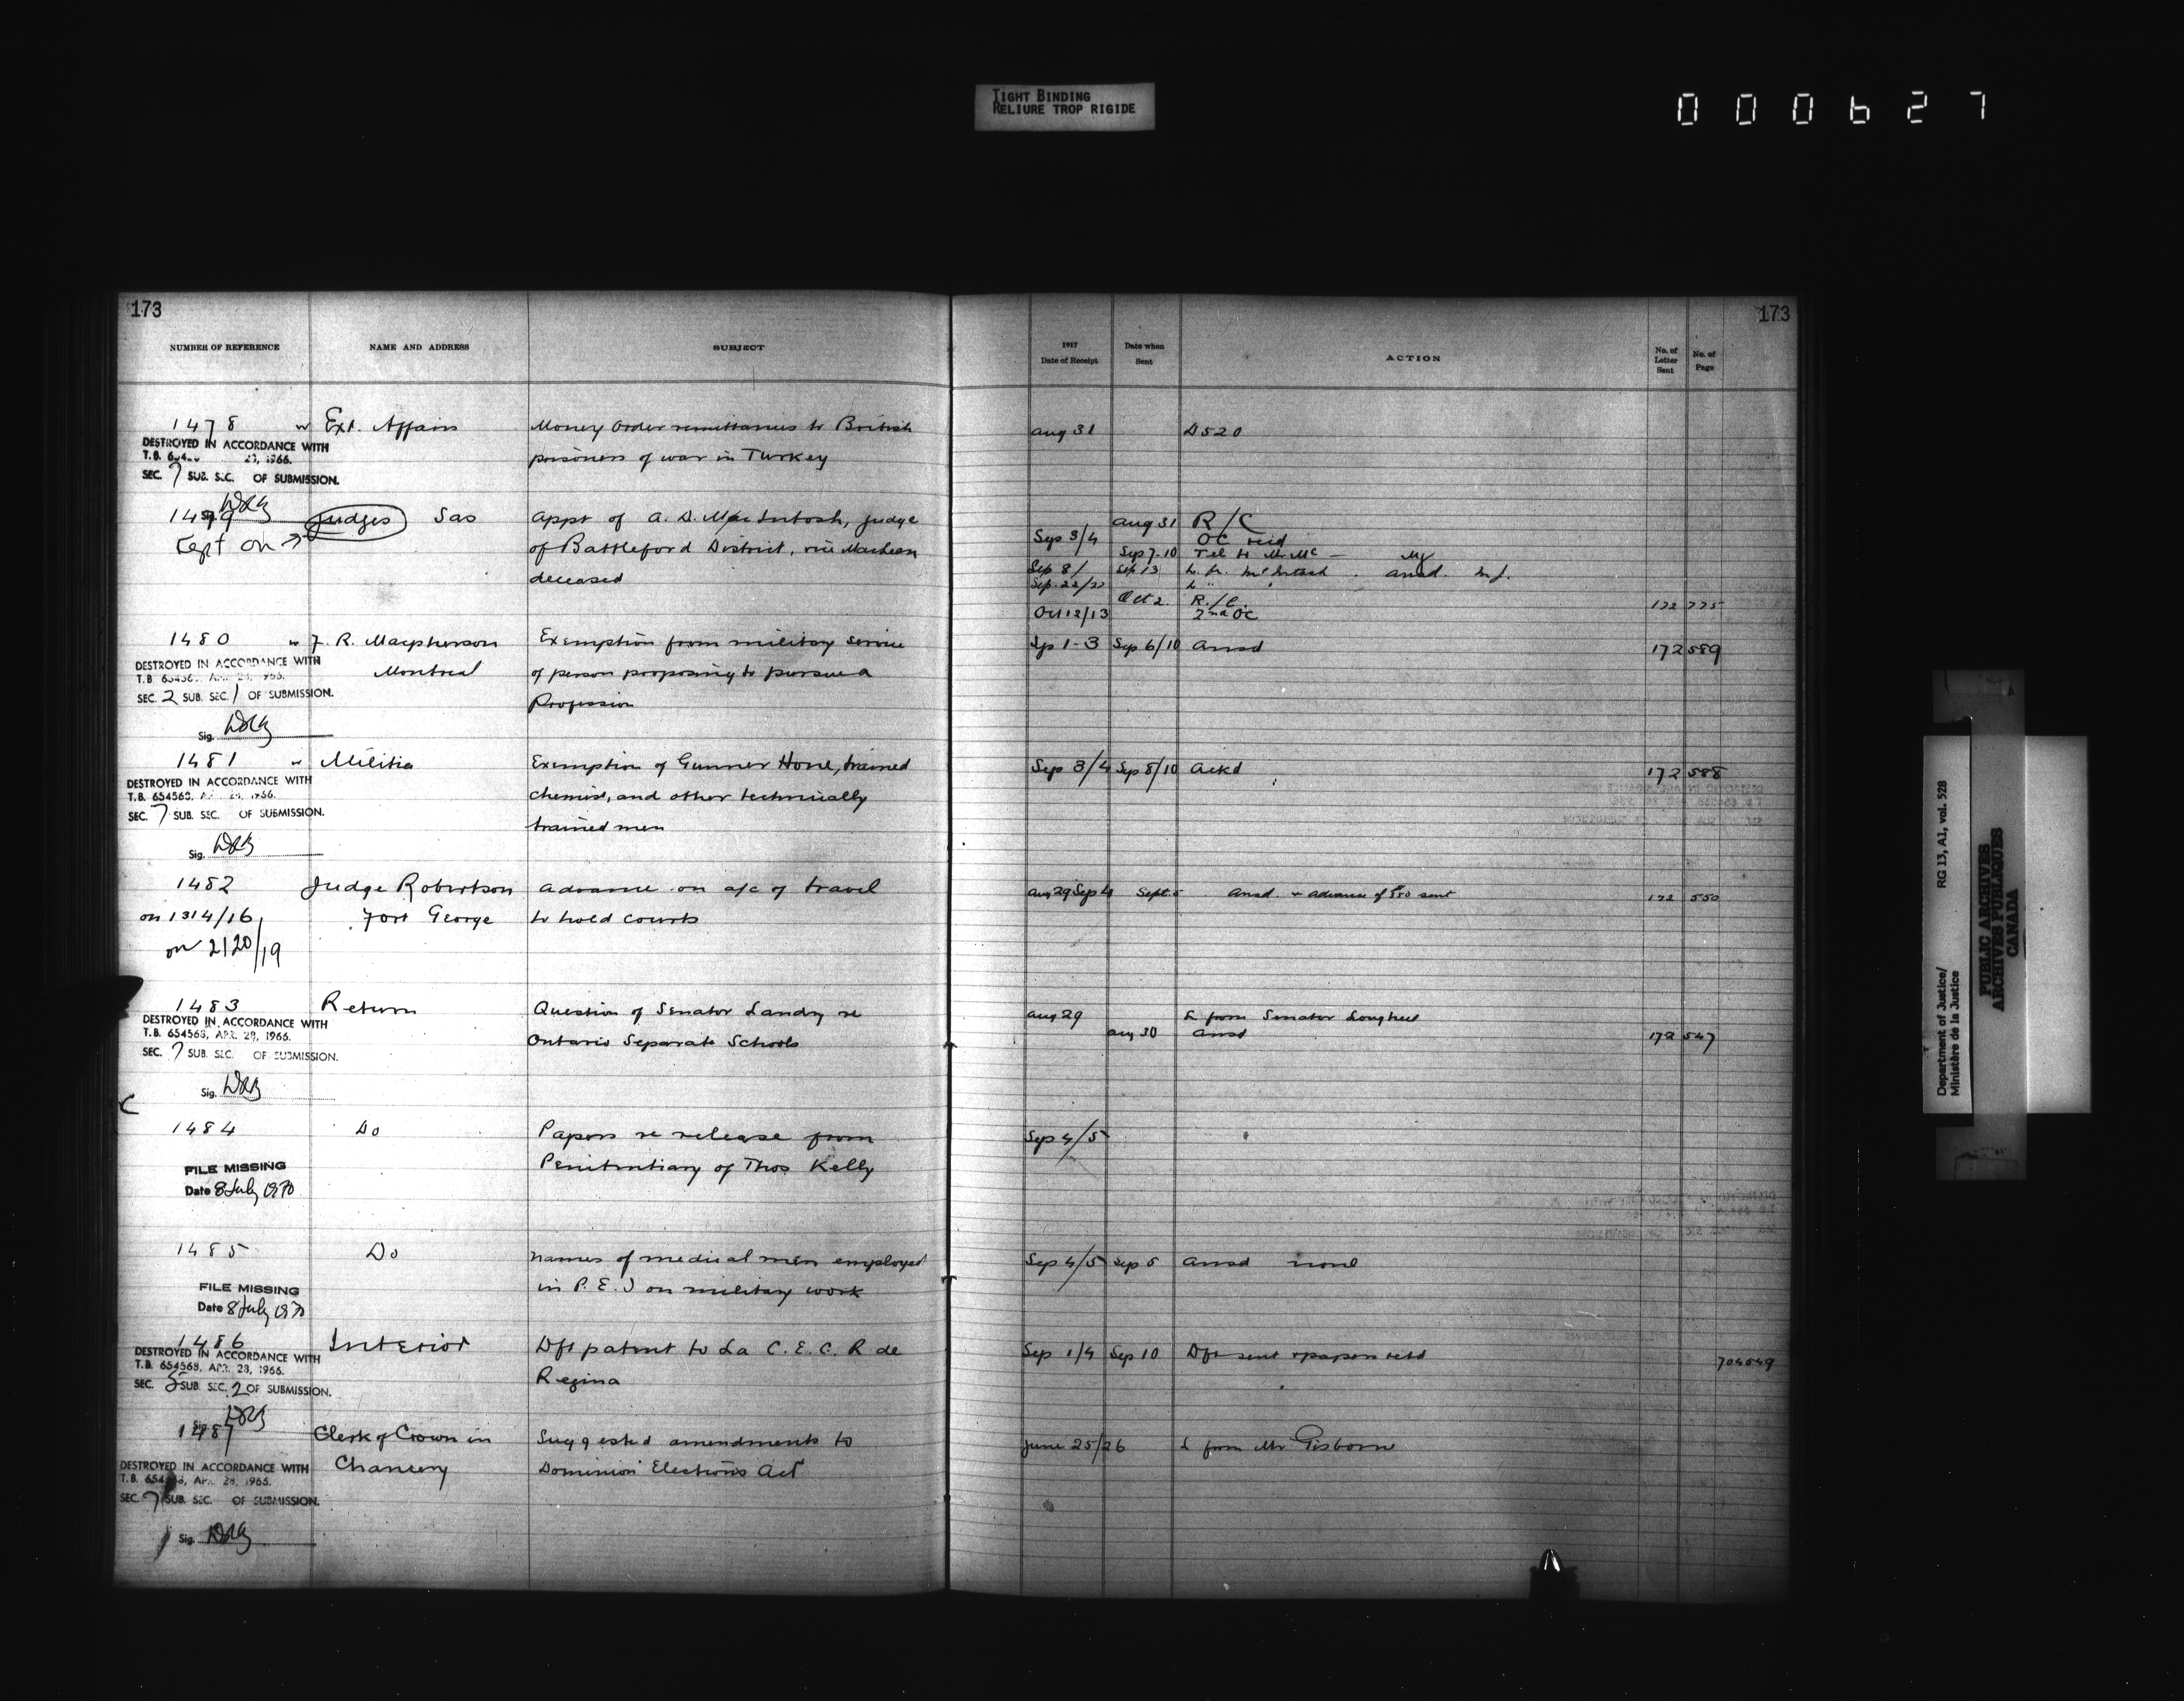 TIGHT BINDING
RELIURE TROP RIGIDE
000627
173
173
NUMBER OF REFERENCE NAME AND ADDRESS SUBJECT 1917 Date of Receipt Date when Sent ACTION No. of Letter Sent No. of Page
1478 Ext. Affairs Money Order remittances to British Aug 31 D520
DESTROYED IN ACCORDANCE WITH
prisoners of war in Turkey
SEC. 7 SUB. SEC. OF SUBMISSION.
1479 Judges Sas Appt of A. D. MacIntosh, Judge Aug 31 R/C
Kept on → of Battleford District, vice Maclean Sep 3/4 OC recd
Sep 7-10 Tel to Mr Mc
deceased Sep 8/ Sep 13 L. fr. McIntosh . Ansd. M.J.
Sep. 22/22 L "
Oct 2. R./C. 172 775
Oct 12/13 2nd OC
1480 J. R. Macpherson Exemption from military service Sep 1-3 Sep 6/10 Ansd 172 589
DESTROYED IN ACCORDANCE WITH
Montreal of person proposing to pursue a
SEC. 2 SUB. SEC. 1 OF SUBMISSION.
Profession
Sig.
1481 Militia Exemption of Gunner Hone, trained Sep 3/4 Sep 8/10 Ackd 172 588
DESTROYED IN ACCORDANCE WITH
T.B. 654568, chemist, and other technically
SEC. 7 SUB. SEC. OF SUBMISSION.
trained men
Sig.
1482 Judge Robertson Advance on a/c of travel Aug 29 Sep 4 Sept. 5 Ansd. + advance of $50 sent 172 550
on 1314/16 Fort George to hold courts
on 2120/19
1483 Return Question of Senator Landry re Aug 29 L from Senator Lougheed
DESTROYED IN ACCORDANCE WITH
T.B. 654568, APR. 28, 1966. Ontario Separate Schools Aug 30 Ansd 172 547
SEC. 7 SUB. SEC. OF SUBMISSION.
Sig.
1484 Do Papers re release from Sep 4/5
FILE MISSING Penitentiary of Thos Kelly
Date 8 July 1970
1485 Do Names of medical men employed Sep 4/5 Sep 5 Ansd none
FILE MISSING in P. E. I on military work
Date 8 July 1970
1486 Interior Dft patent to La C. E. C. R de Sep 1/4 Sep 10 Dft sent + papers retd
DESTROYED IN ACCORDANCE WITH
T.B. 654568, APR. 28, 1966. Regina
SEC. 5 SUB. SEC. 2 OF SUBMISSION.
Sig.
1487 Clerk of Crown in Suggested amendments to June 25/26 L from Mr Gisborne
DESTROYED IN ACCORDANCE WITH Chancery Dominion Elections Act
SEC. 7 SUB. SEC. OF SUBMISSION.
Sig.
Department of Justice/ RG 13, A1, vol. 528
Ministère de la Justice
PUBLIC ARCHIVES
ARCHIVES PUBLIQUES
CANADA